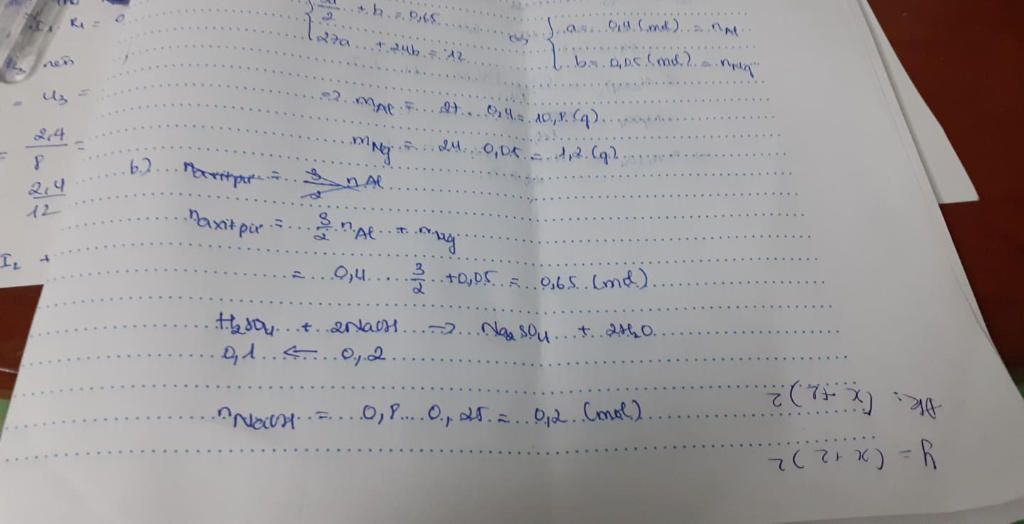 I₁ R₁ = 0
/2 + b = 0,65
27a + 24b = 12
a = 0,4 (mol) = nAl
b = 0,05 (mol) = nMg
= U₃ =
=> mAl = 27 . 0,4 = 10,8 (g)
mMg = 24 . 0,05 = 1,2 (g)
= 2,4/8 =
2,4/12
b.) naxitpư = 3/2 nAl
naxitpư = 3/2 nAl + nMg
I₂ +
= 0,4 . 3/2 + 0,05 = 0,65 (mol)
H₂SO₄ + 2NaOH → Na₂SO₄ + 2H₂O
0,1 ← 0,2
nNaOH = 0,8 . 0,25 = 0,2 (mol)
ĐK: (x+2)2
y = (x+2)2